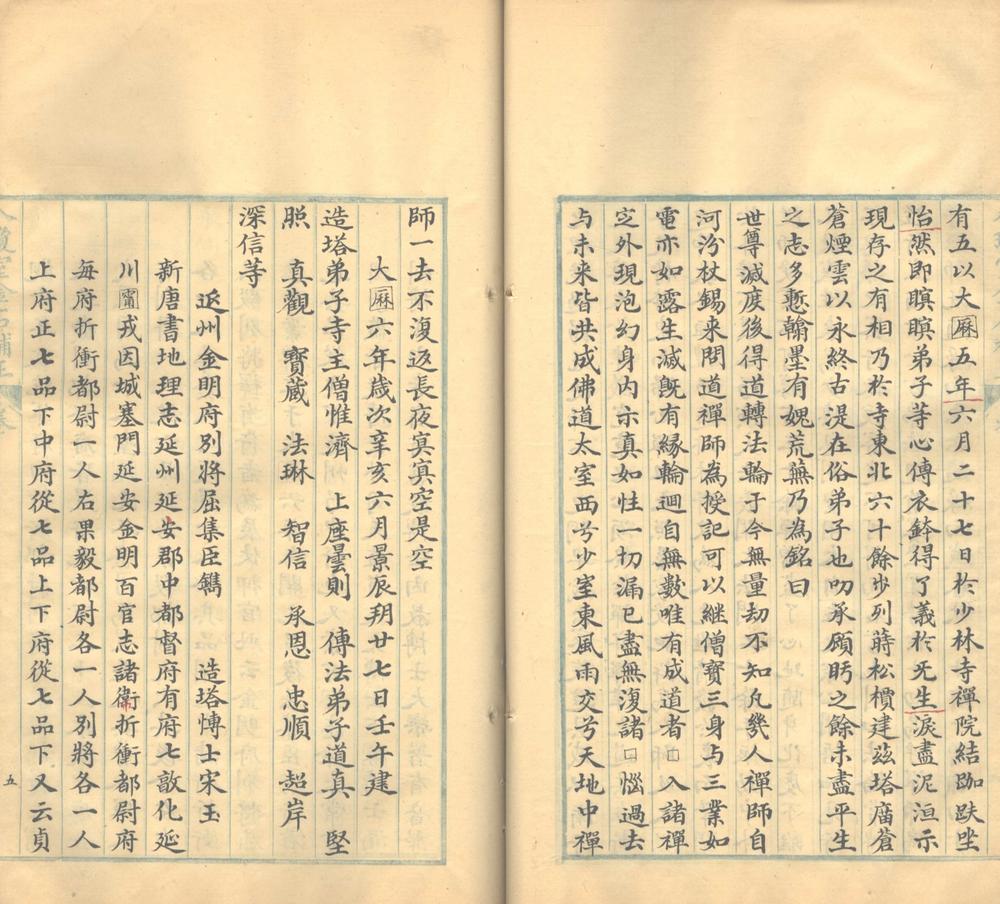 有五以大厤五年六月二十七日於少林寺禪院結跏趺坐
怡然即瞑瞑弟子等心傳衣鉢得了義於旡生淚盡泥洹示
現存之有相乃於寺東北六十餘步列蒔松檟建茲塔庿蒼
蒼煙雲以永終古湜在俗弟子也叨承顧眄之餘未盡平生
之志多慙翰墨有媿荒蕪乃為銘曰
世尊滅度後得道轉法輪于今無量劫不知凡幾人禪師自
河汾杖錫來問道禪師為授記可以継僧寶三身与三業如
電亦如露生滅旣有緣輪迴自無數唯有成道者□入諸禪
定外現泡幻身内示真如性一切漏已盡無復諸□惱過去
与未来皆共成佛道太室西兮少室東風雨交兮天地中禪
師一去不復返長夜冥冥空是空
大厤六年歲次辛亥六月景辰朔廿七日壬午建
造塔弟子寺主僧惟濟 上座曇則 傳法弟子道真 堅
照 真觀 寶藏 法琳 智信 承恩 忠順 超岸
深信等
延州金明府別將屈集臣鐫 造塔博士宋玉
新唐書地理志延州延安郡中都督府有府七敦化延
川寗戎因城塞門延安金明百官志諸衛折衝都尉府
每府折衝都尉一人右果毅都尉各一人別將各一人
上府正七品下中府從七品上下府從七品下又云貞
五